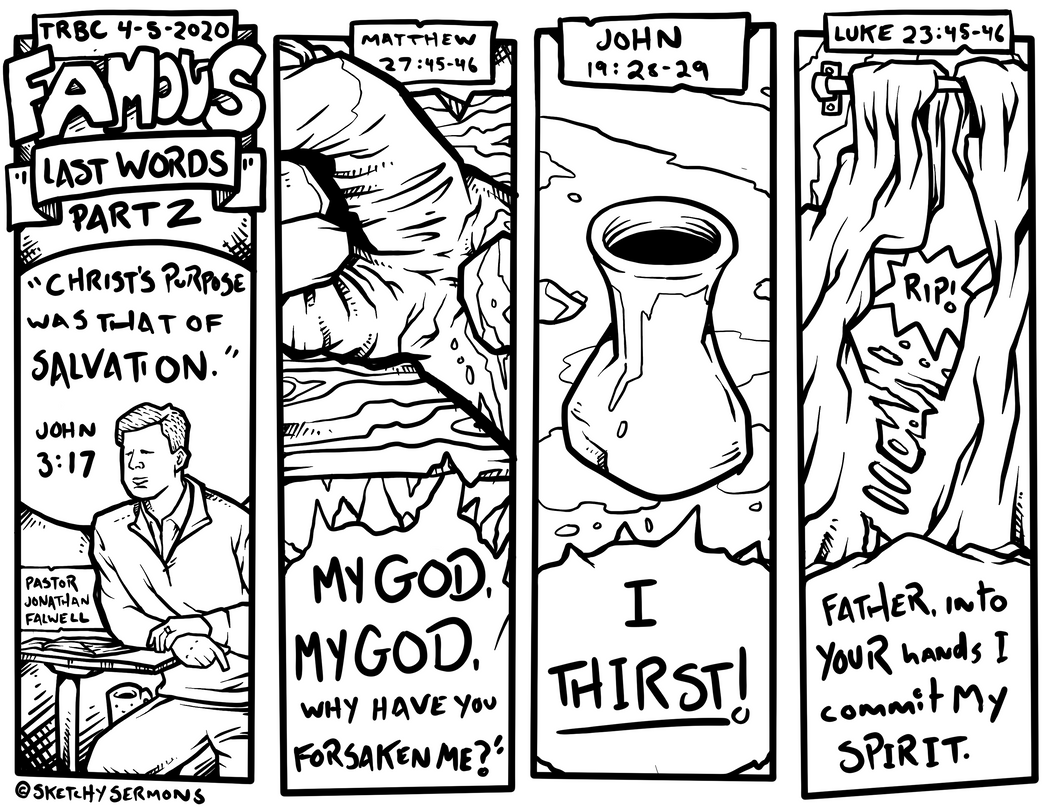 TRBC 4-5-2020
FAMOUS
"LAST WORDS"
PART 2
"CHRIST'S PURPOSE
WAS THAT OF
SALVATION."
JOHN
3:17
PASTOR
JONATHAN
FALWELL
©SKETCHY SERMONS
MATTHEW
27:45-46
MY GOD,
MY GOD,
WHY HAVE YOU
FORSAKEN ME?"
JOHN
19:28-29
I
THIRST!
LUKE 23:45-46
RIP!
FATHER, into
YOUR hands I
commit My
SPIRIT.